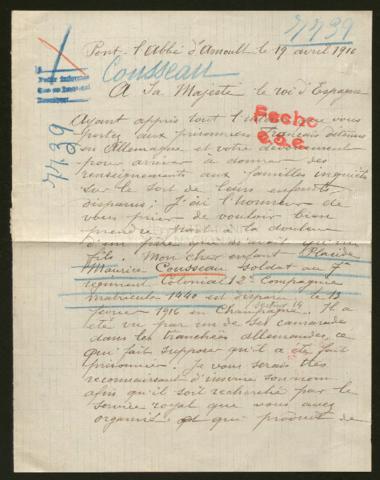 7439
Pont-l'Abbé d'Arnoult le 19 avril 1916
Cousseau
A Sa Majesté le roi d'Espagne
Fecho
Ayant appris tout l' que vous
portez aux prisonniers français détenus
en Allemagne et votre dévouement
pour arriver à donner des
renseignements aux familles inquiètes
sur le sort de leurs enfants
disparus; j'ai l'honneur de
vous prier de vouloir bien
prendre part à la douleur
d'un père qui
7439
fils. Mon cher enfant Placide
Maurice Cousseau soldat au 7e
régiment Colonial 12e Compagnie
matricule 1440 est disparu le 13
février 1916 en Champagne. Il a
été vu par un de ses camarades
dans les tranchées allemandes, ce
qui fait supposer qu'il a été fait
prisonnier. Je vous serais très
reconnaissant d'inscrire son nom
afin qu'il soit recherché par le
service royal que vous avez
organisé et qui produit de